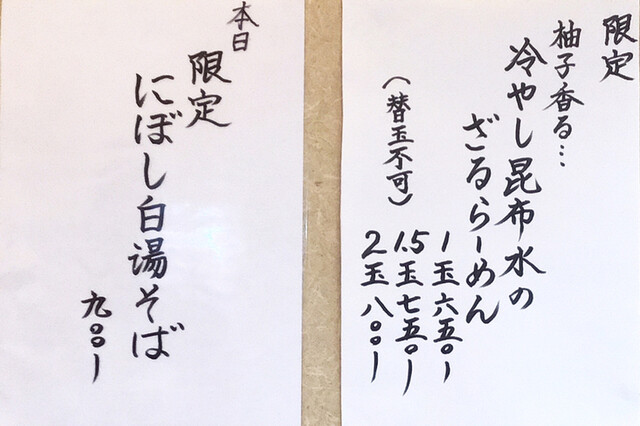 限定
柚子香る…
冷やし昆布水の
ざるらーめん
(替玉不可)
1玉六五〇ー
1.5玉七五〇ー
2玉八〇〇ー
本日
限定
にぼし白湯そば
九〇〇ー